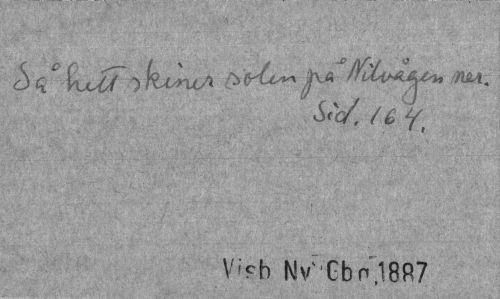 Så hett skiner solen på Nilvågen ner.
Sid. 164.
Visb Nv Gbg, 1887